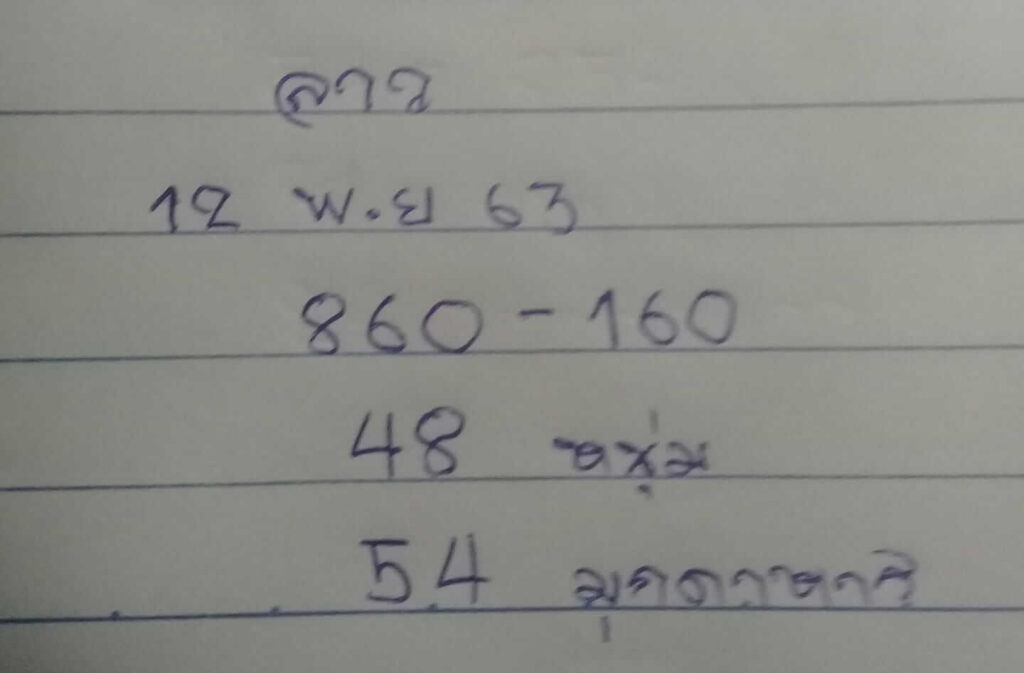 ลาว
12 พ.ย 63
860-160
48
54 มุกดาหาร